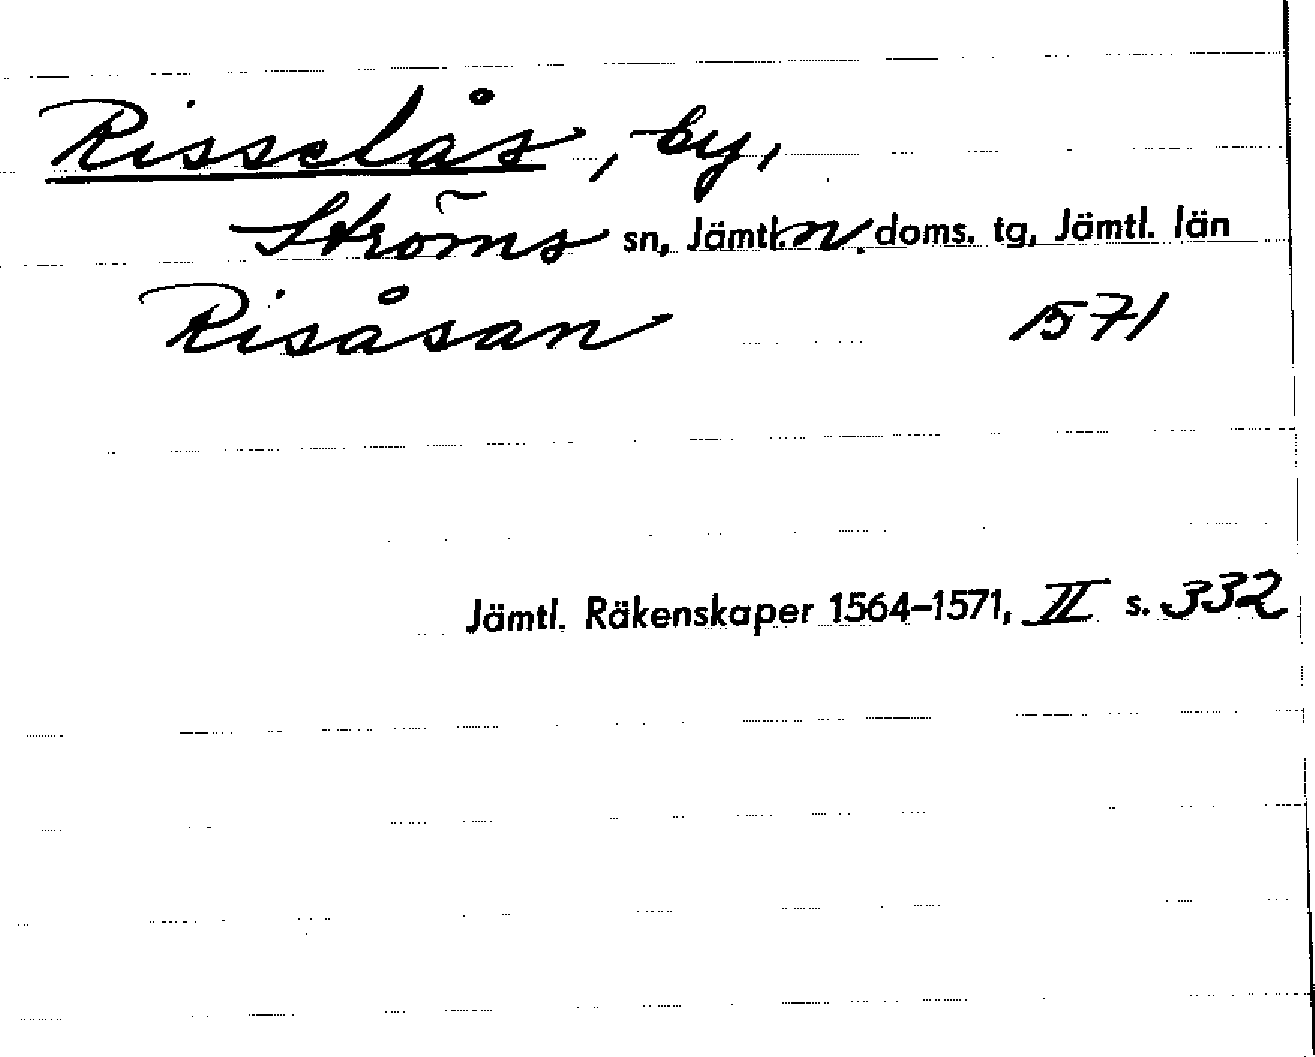 Risselås, by,
Ströms sn, Jämtl. n. doms. tg, Jämtl. län
Risåsan 1571
Jämtl. Räkenskaper 1564-1571, II s. 332